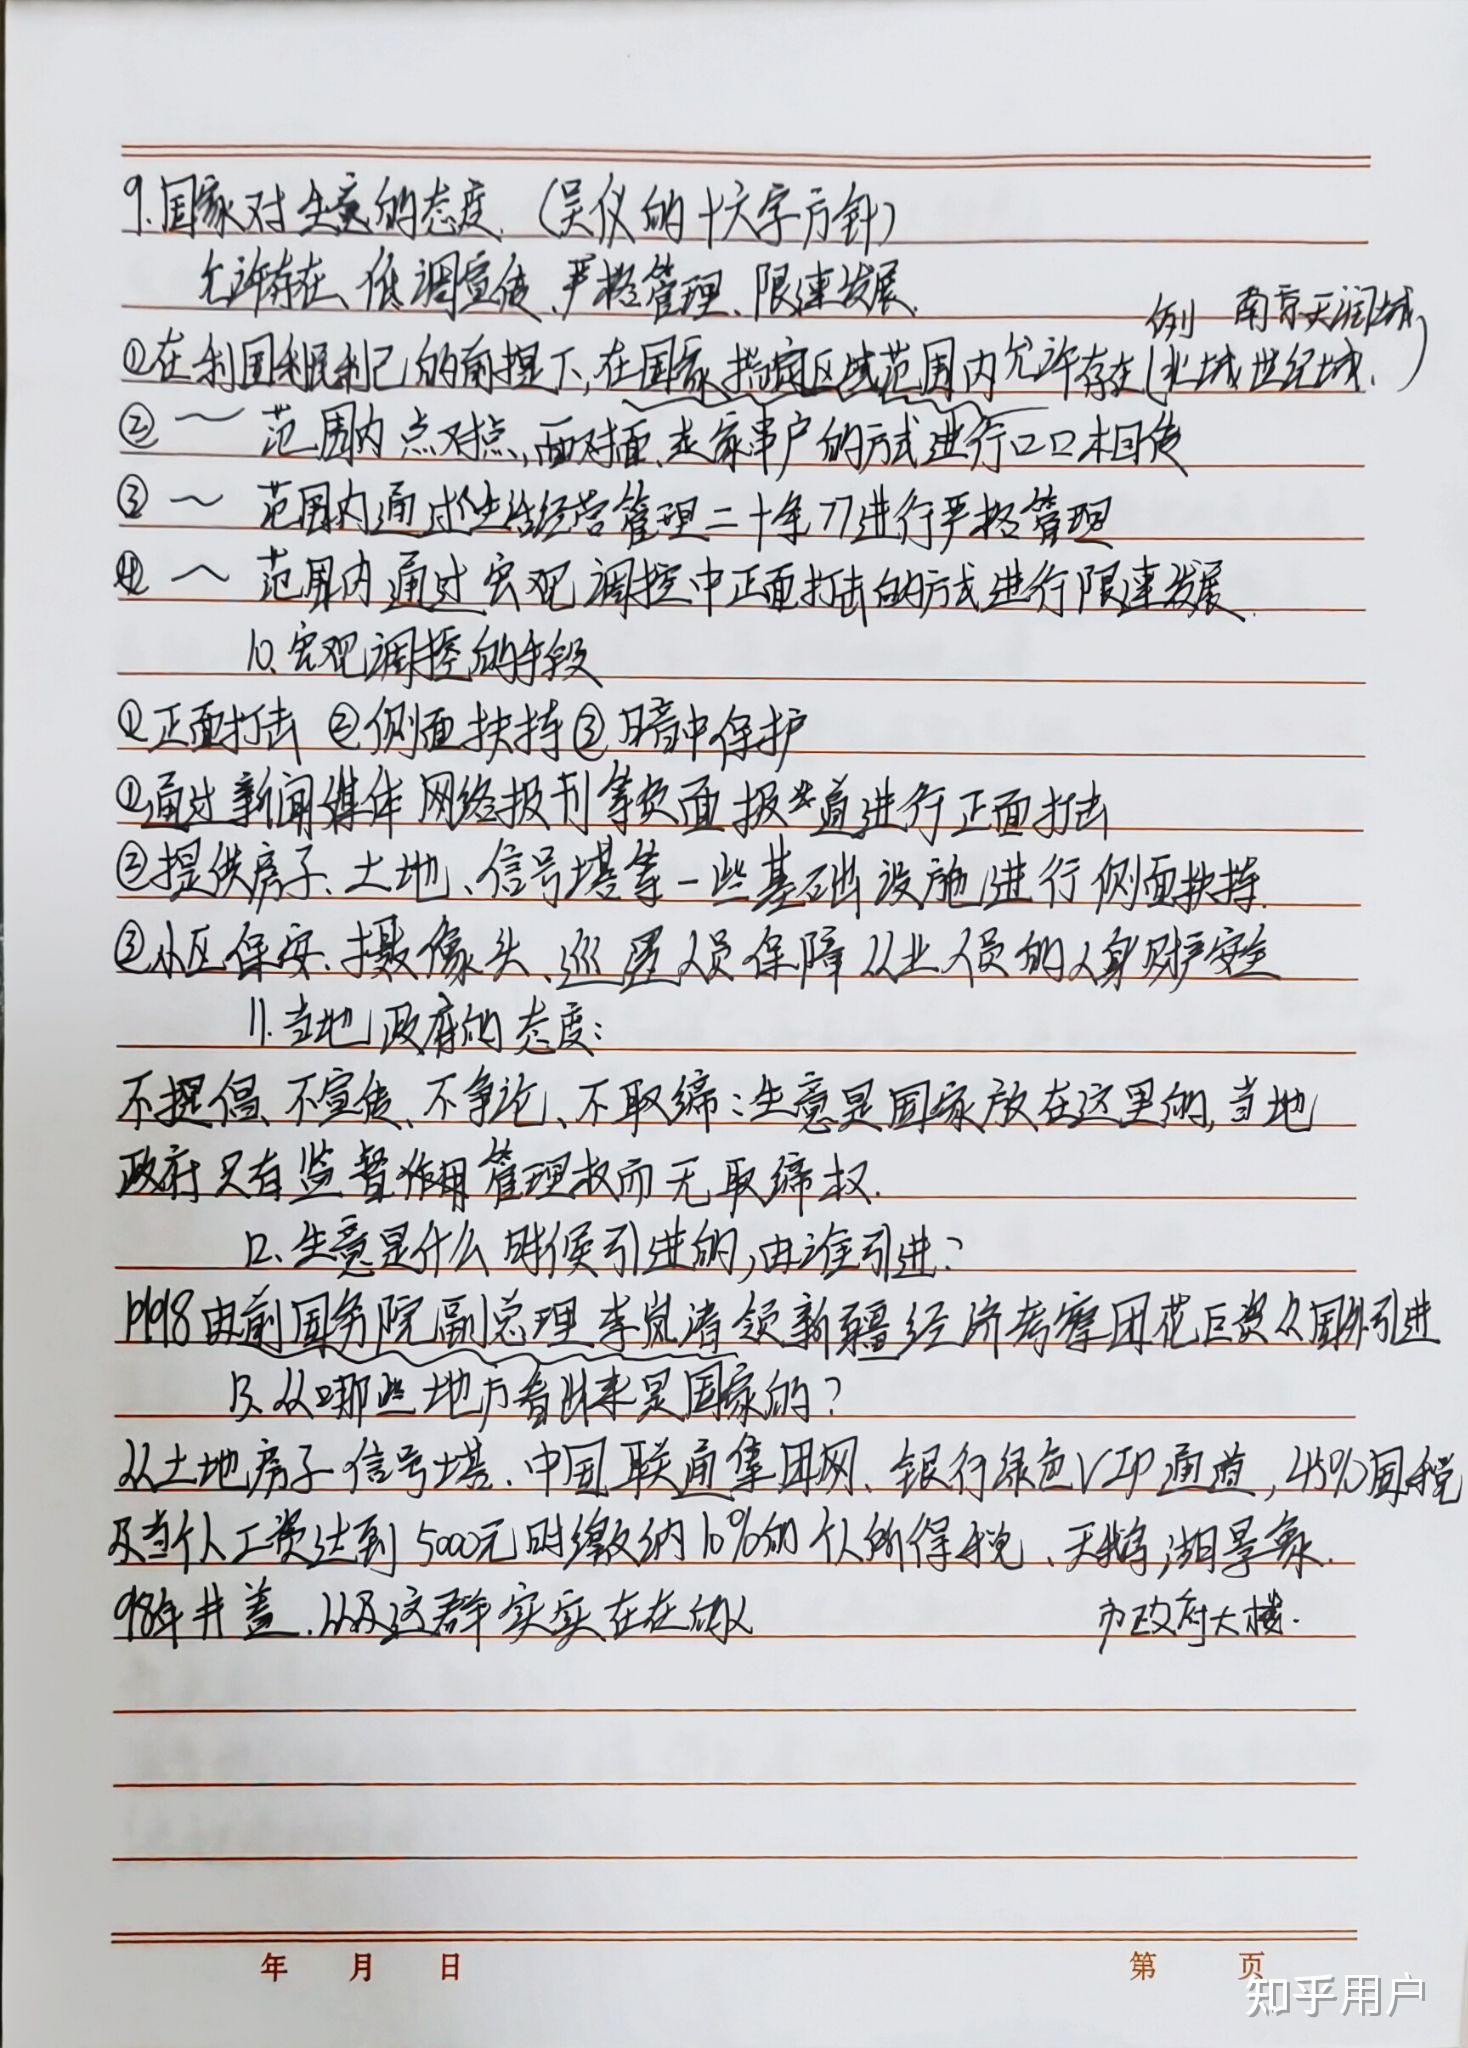 9.国家对生意的态度.(吴仪的十六字方针)
允许存在、低调宣传、严格管理、限速发展.
例 南京天润城
①在利国利民利己的前提下,在国家指定区域范围内允许存在(北城世纪城.)
②~范围内点对点,面对面、走家串户的方式进行口口相传
③~范围内通过生活经营管理二十条进行严格管理
④~范围内通过宏观调控中正面打击的方式进行限速发展.
10.宏观调控的手段
①正面打击 ②侧面扶持 ③暗中保护
①通过新闻媒体 网络报刊等负面报道进行正面打击
②提供房子、土地、信号塔等一些基础设施进行侧面扶持.
③小区保安、摄像头、巡逻人员保障从业人员的人身财产安全
11.当地政府的态度:
不提倡、不宣传、不争论、不取缔:生意是国家放在这里的,当地
政府只有监督作用管理权而无取缔权.
12、生意是什么时候引进的,由谁引进?
1998由前国务院副总理李岚清领新疆经济考察团花巨资从国外引进
13、从哪些地方看出来是国家的?
从土地房子 信号塔.中国联通集团网、银行绿色VIP通道,45%国税
及当个人工资达到5000元时缴纳10%的个人所得税、天鹅湖景象.
98年井盖.以及这群实实在在的人
市政府大楼.
年 月 日
第 页
知乎用户